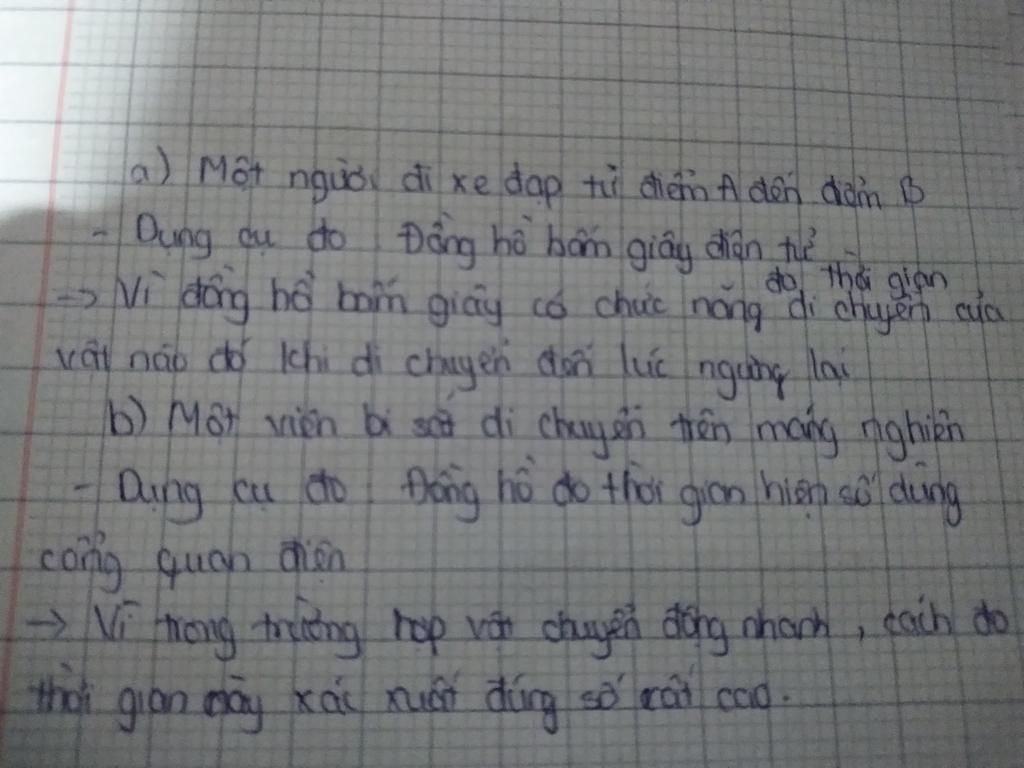 a) Một người đi xe đạp từ điểm A đến điểm B
- Dụng cụ đo: Đồng hồ bấm giây điện tử
đo thời gian
-> Vì đồng hồ bấm giây có chức năng di chuyển của
vật nào đó khi di chuyển đến lúc ngừng lại
b) Một viên bi sắt di chuyển trên máng nghiên
- Dụng cụ đo: Đồng hồ đo thời gian hiện số dùng
cổng quan điện
-> Vì trong trường hợp vật chuyển động nhanh, cách đo
thời gian này xác xuất đúng số rất cao.